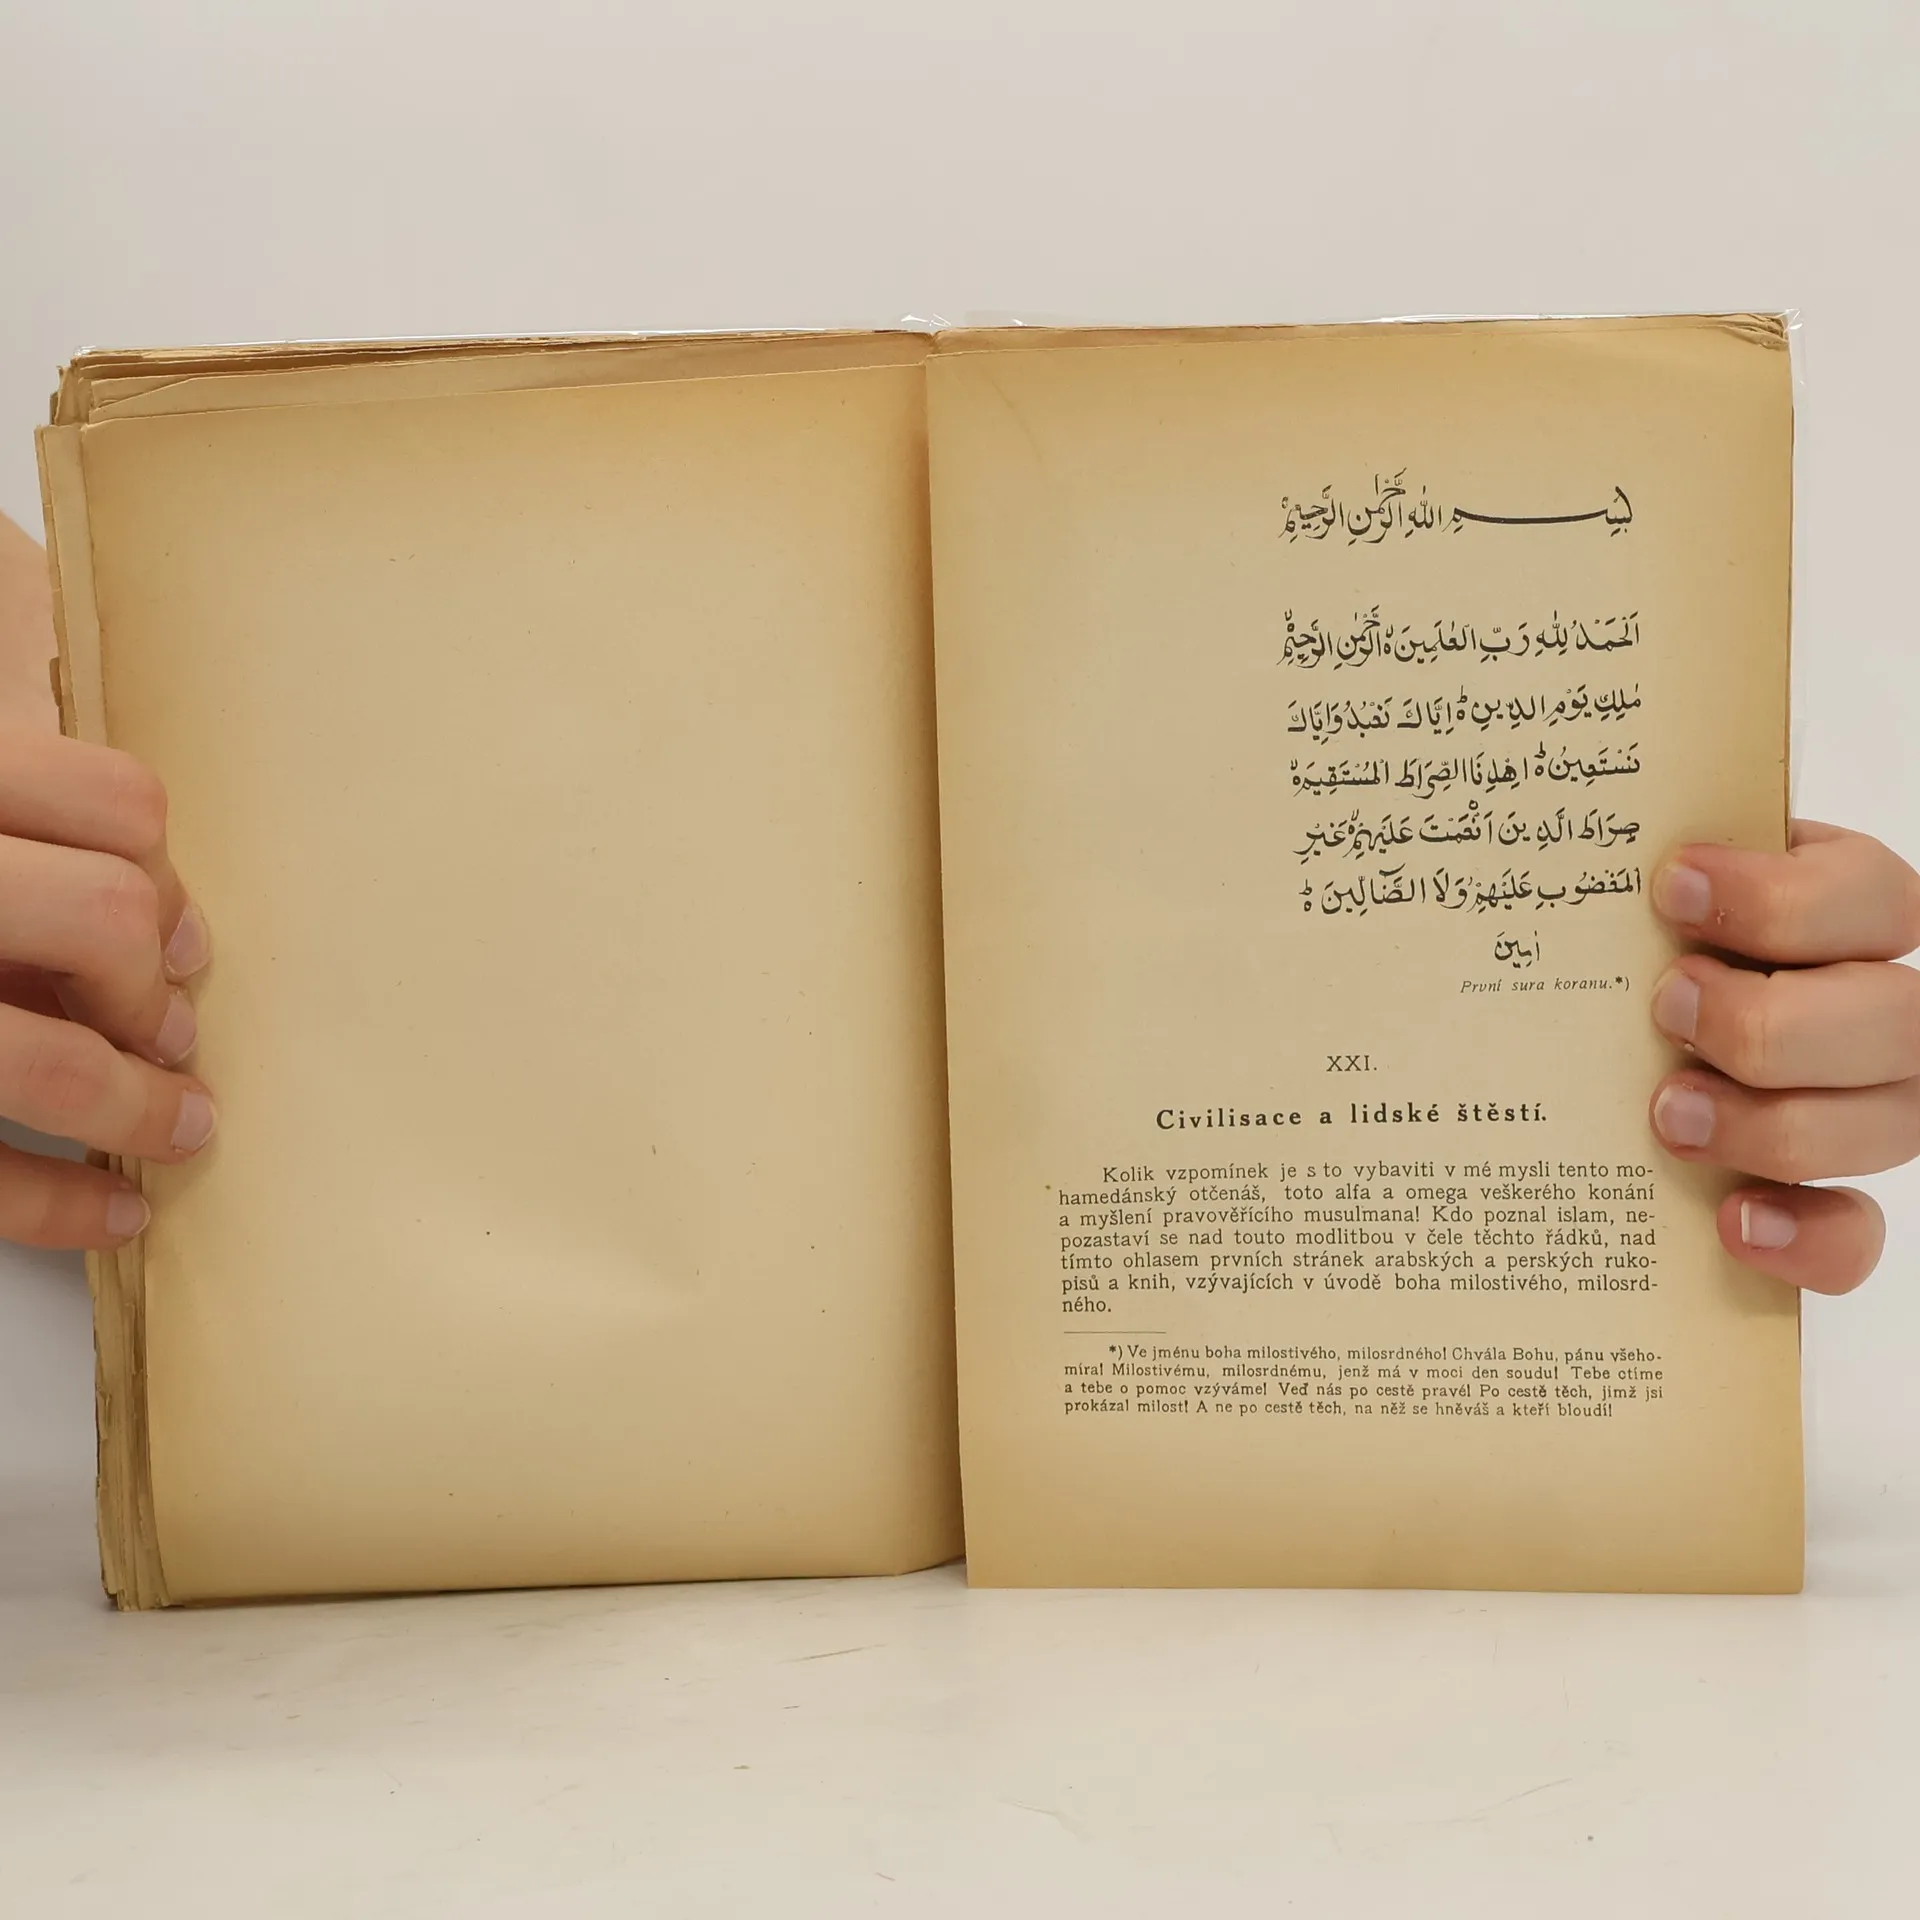 بِسْمِ اللّٰهِ الرَّحْمٰنِ الرَّحِيْمِ
اَلْحَمْدُ لِلّٰهِ رَبِّ الْعٰلَمِيْنَ ۙ الرَّحْمٰنِ الرَّحِيْمِ ۙ
مٰلِكِ يَوْمِ الدِّيْنِ ؕ اِيَّاكَ نَعْبُدُ وَاِيَّاكَ
نَسْتَعِيْنُ ؕ اِهْدِنَا الصِّرَاطَ الْمُسْتَقِيْمَ ۙ
صِرَاطَ الَّذِيْنَ اَنْعَمْتَ عَلَيْهِمْ ۙ غَيْرِ
الْمَغْضُوْبِ عَلَيْهِمْ وَلَا الضَّآلِّيْنَ ؕ
اٰمِيْنَ
První sura koranu.*)
XXI.
Civilisace a lidské štěstí.
Kolik vzpomínek je s to vybaviti v mé mysli tento mo-
hamedánský otčenáš, toto alfa a omega veškerého konání
a myšlení pravověřícího musulmana! Kdo poznal islam, ne-
pozastaví se nad touto modlitbou v čele těchto řádků, nad
tímto ohlasem prvních stránek arabských a perských ruko-
pisů a knih, vzývajících v úvodě boha milostivého, milosrd-
ného.
*) Ve jménu boha milostivého, milosrdného! Chvála Bohu, pánu všeho-
míra! Milostivému, milosrdnému, jenž má v moci den soudu! Tebe ctíme
a tebe o pomoc vzýváme! Veď nás po cestě pravé! Po cestě těch, jimž jsi
prokázal milost! A ne po cestě těch, na něž se hněváš a kteří bloudí!